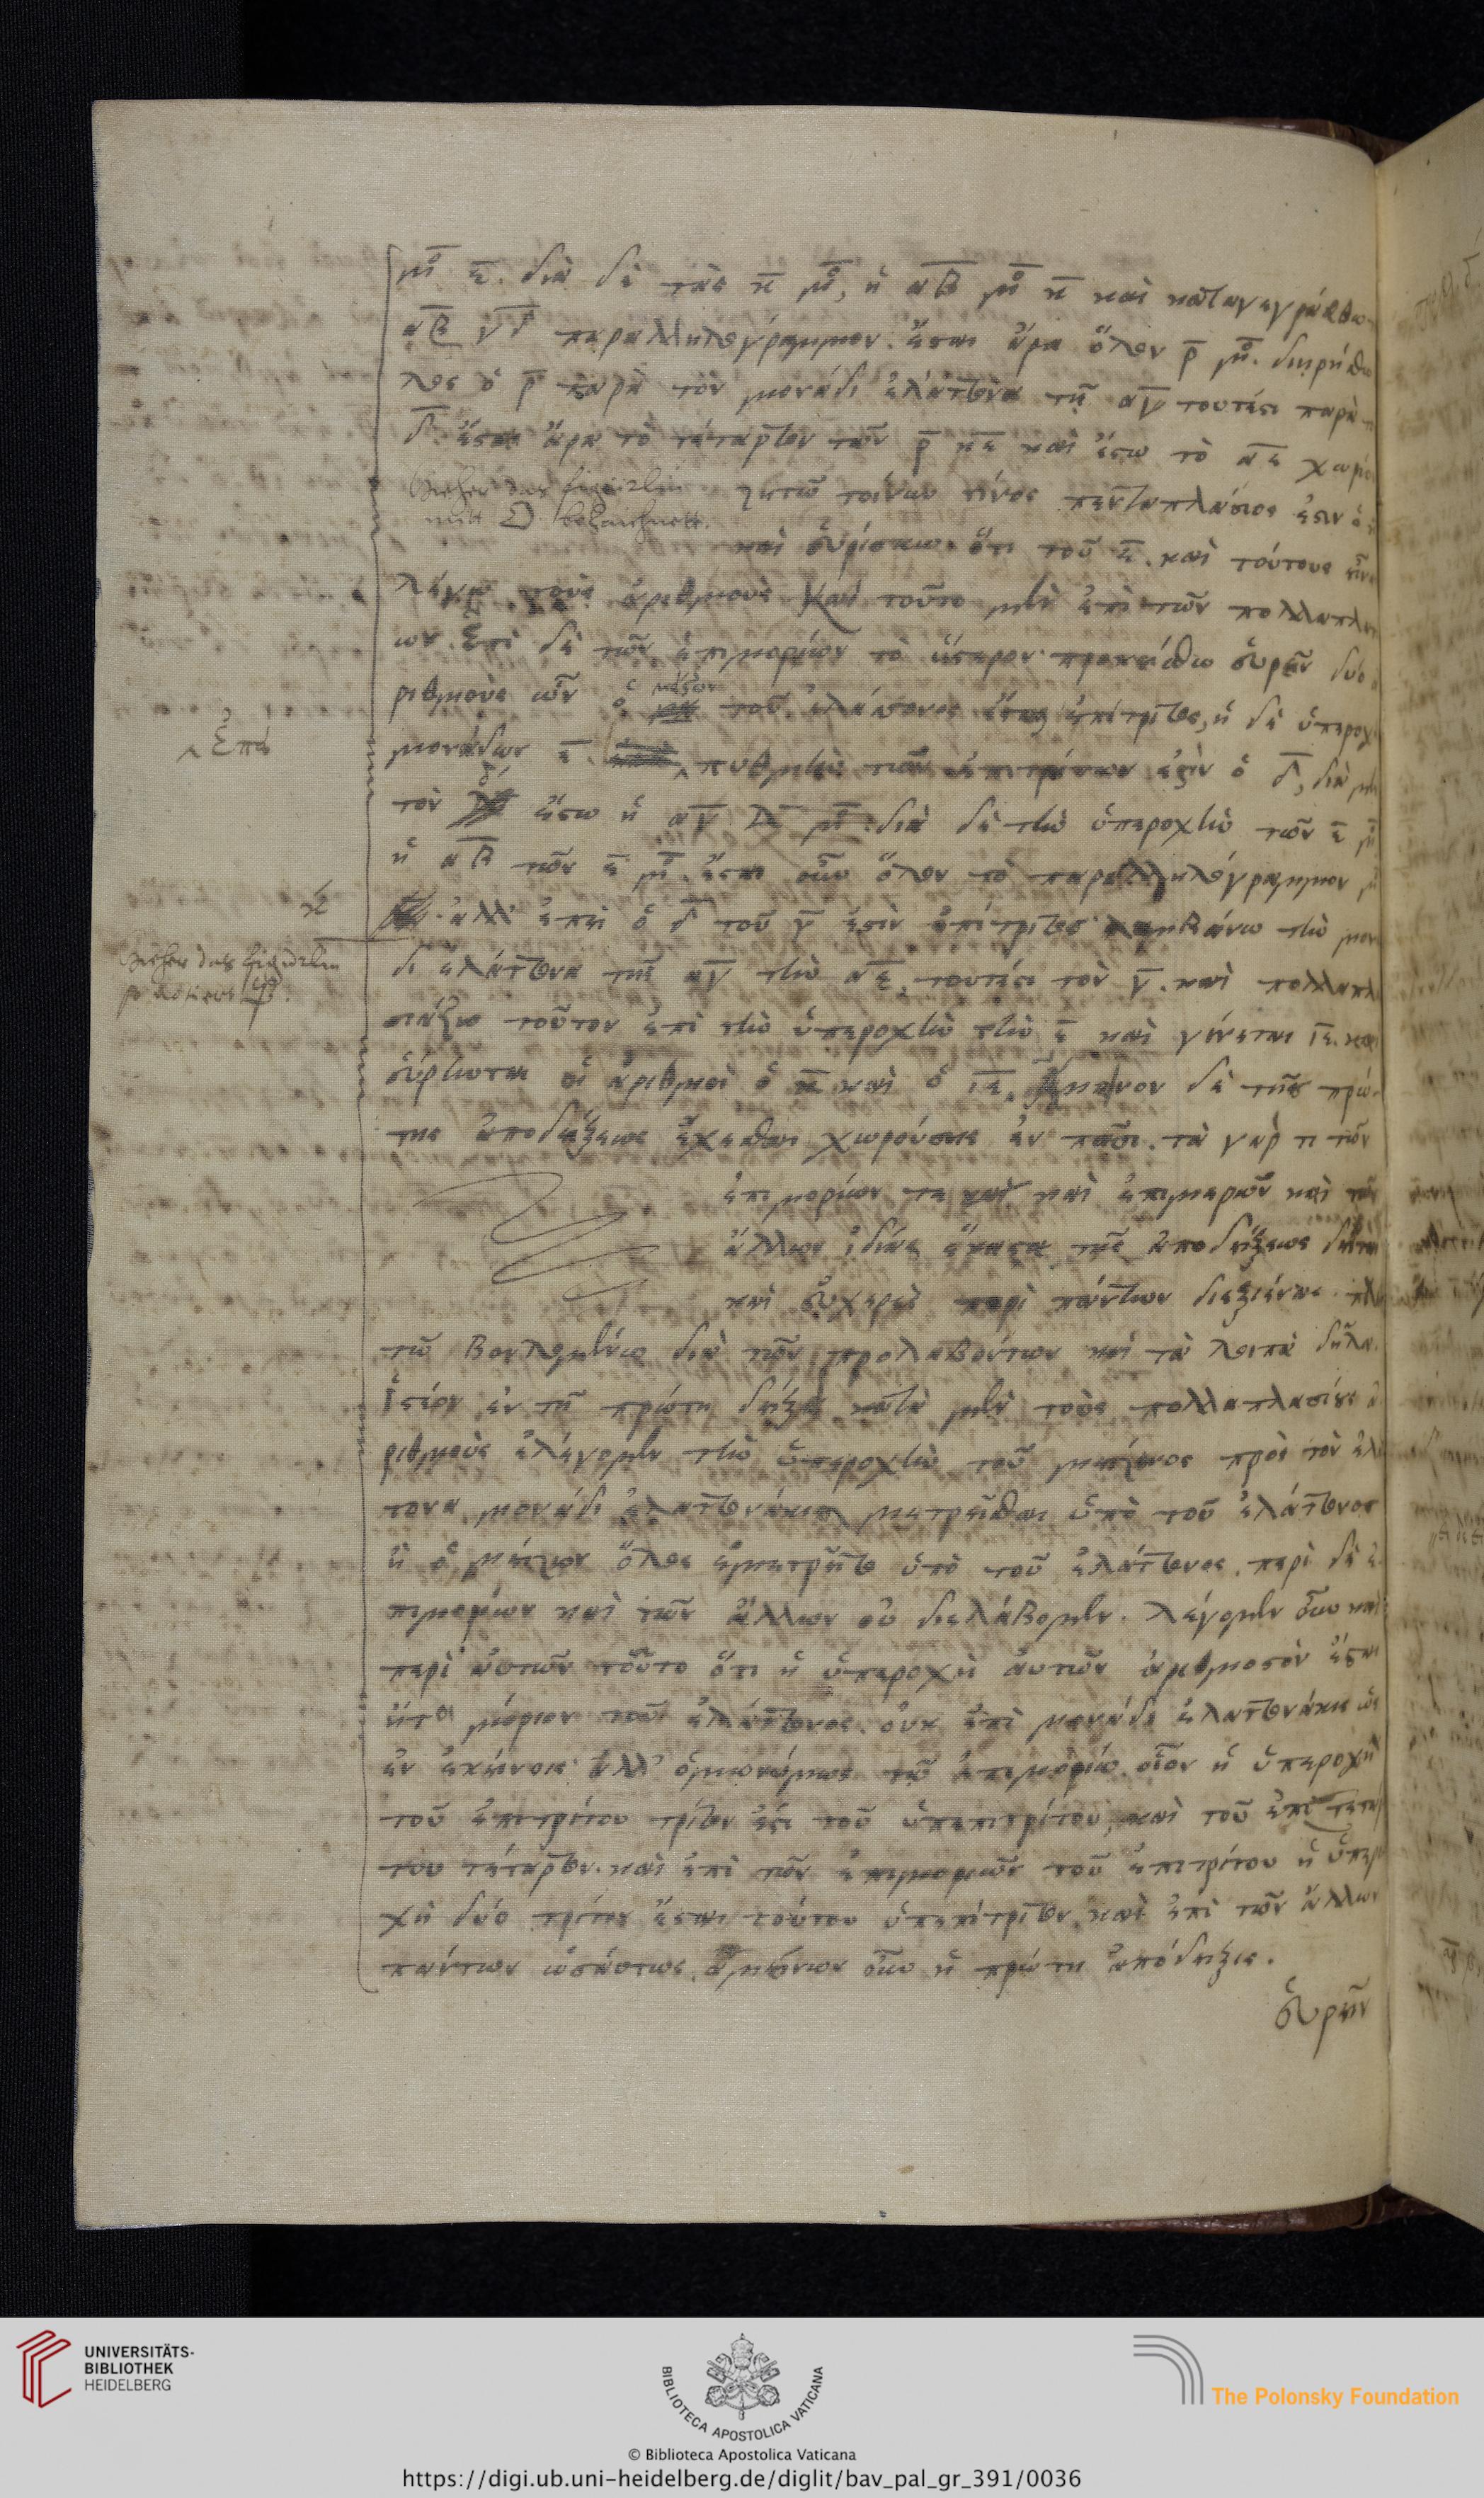 μο ε. διὰ δὲ τὰς κ μο, ἡ αβ μο κ καὶ καταγεγράφθω
αβ γδ παραλληλόγραμμον. ἔσται ἄρα ὅλον ρ μο. διηρήσθω
λος ὁ ρ παρὰ τὸν μονάδι ἐλάττονα τῆς αγ τουτέστι παρὰ
δ. ἔσται ἄρα τὸ τέταρτον τῶν ρ κε καὶ ἔστω τὸ αε χωρίον
ζητῶ τοίνυν τίνος πενταπλάσιος ἐστιν ὁ
καὶ εὑρίσκω ὅτι τοῦ ε. καὶ τούτους εἶναι
λέγω τοὺς ἀριθμούς καὶ τοῦτο μὲν ἐπὶ τῶν πολλαπλα
ων. ἐπὶ δὲ τῶν ἐπιμορίων τὸ ὕστερον. προκείσθω εὑρεῖν δύο
ριθμοὺς ὧν ὁ μείζων τοῦ ἐλάττονος ἔσται ἐπίτριτος, ἡ δὲ ὑπεροχὴ
μονάδων ε. πυθμὴν τῶν ἐπιτρίτων ἐστὶν ὁ δ, διὰ μὲν
τὸν δ ἔστω ἡ αγ μο. διὰ δὲ τὴν ὑπεροχὴν τῶν ε μο
ἡ αβ τῶν ε μο. ἔσται οὖν ὅλον τὸ παραλληλόγραμμον
ἀλλ' ἐπεὶ ὁ δ τοῦ γ ἐστὶν ἐπίτριτος λαμβάνω τὴν μονά
δι ἐλάττονα τῆς αγ τὴν αε, τουτέστι τὸν γ. καὶ πολλαπλα
σιάζω τοῦτον ἐπὶ τὴν ὑπεροχὴν τὴν ε καὶ γίνεται ιε. καὶ
εὕρηνται οἱ ἀριθμοὶ ὁ κ καὶ ὁ ιε. ἄμεινον δὲ τῆς πρώ-
της ἀποδείξεως ἔχεσθαι χωρούσης ἐν πᾶσι. τὰ γάρ τι τῶν
ἐπιμορίων τε καὶ ἐπιμερῶν καὶ τῶν
ἄλλων ἰδίας ἕκαστα τῆς ἀποδείξεως δεῖται
καὶ δυχερὲς περὶ πάντων διεξιέναι. πλὴν
τῷ βουλομένῳ διὰ τῶν προλαβόντων καὶ τὰ λοιπὰ δῆλα.
Ἰστέον ἐν τῇ πρώτῃ δείξει κατὰ μὲν τοὺς πολλαπλασίους ἀ
ριθμοὺς ἐλέγομεν τὴν ὑπεροχὴν τοῦ μείζονος πρὸς τὸν ἐλάτ
τονα μονάδι ἐλαττονάκις μετρεῖσθαι ὑπὸ τοῦ ἐλάττονος
ἢ ὁ μείζων ὅλος ἐμετρεῖτο ὑπὸ τοῦ ἐλάττονος. περὶ δὲ ἐ
πιμορίων καὶ τῶν ἄλλων οὐ διελάβομεν. λέγομεν οὖν καὶ
περὶ αὐτῶν τοῦτο ὅτι ἡ ὑπεροχὴ αὐτῶν ἀριθμοστὸν ἔσται
ἤτοι μόριον τοῦ ἐλάττονος. οὐκ ἐπὶ μονάδι ἐλαττονάκις ὡς
ἐν ἐκείνοις ἀλλ' ὁμωνύμως τῷ ἐπιμορίῳ. οἷον ἡ ὑπεροχὴ
τοῦ ἐπιτρίτου τρίτον ἐστὶ τοῦ ὑπεπιτρίτου, καὶ τοῦ ἐπιτετάρ
του τέταρτον. καὶ ἐπὶ τῶν ἐπιμερῶν τοῦ ἐπιτρίτου ἡ ὑπερο
χὴ δύο τρίτα ἔσται τούτου ὑπεπίτριτον. καὶ ἐπὶ τῶν ἄλλων
πάντων ὡσαύτως. ἀμείνων οὖν ἡ πρώτη ἀπόδειξις.
εὑρεῖν
Hieher das figürlin
mitt bezaichnett.
ἐπεὶ
κ
Hieher das figürlin
UNIVERSITÄTS-
BIBLIOTHEK
HEIDELBERG
BIBLIOTECA APOSTOLICA VATICANA
© Biblioteca Apostolica Vaticana
The Polonsky Foundation
https://digi.ub.uni-heidelberg.de/diglit/bav_pal_gr_391/0036